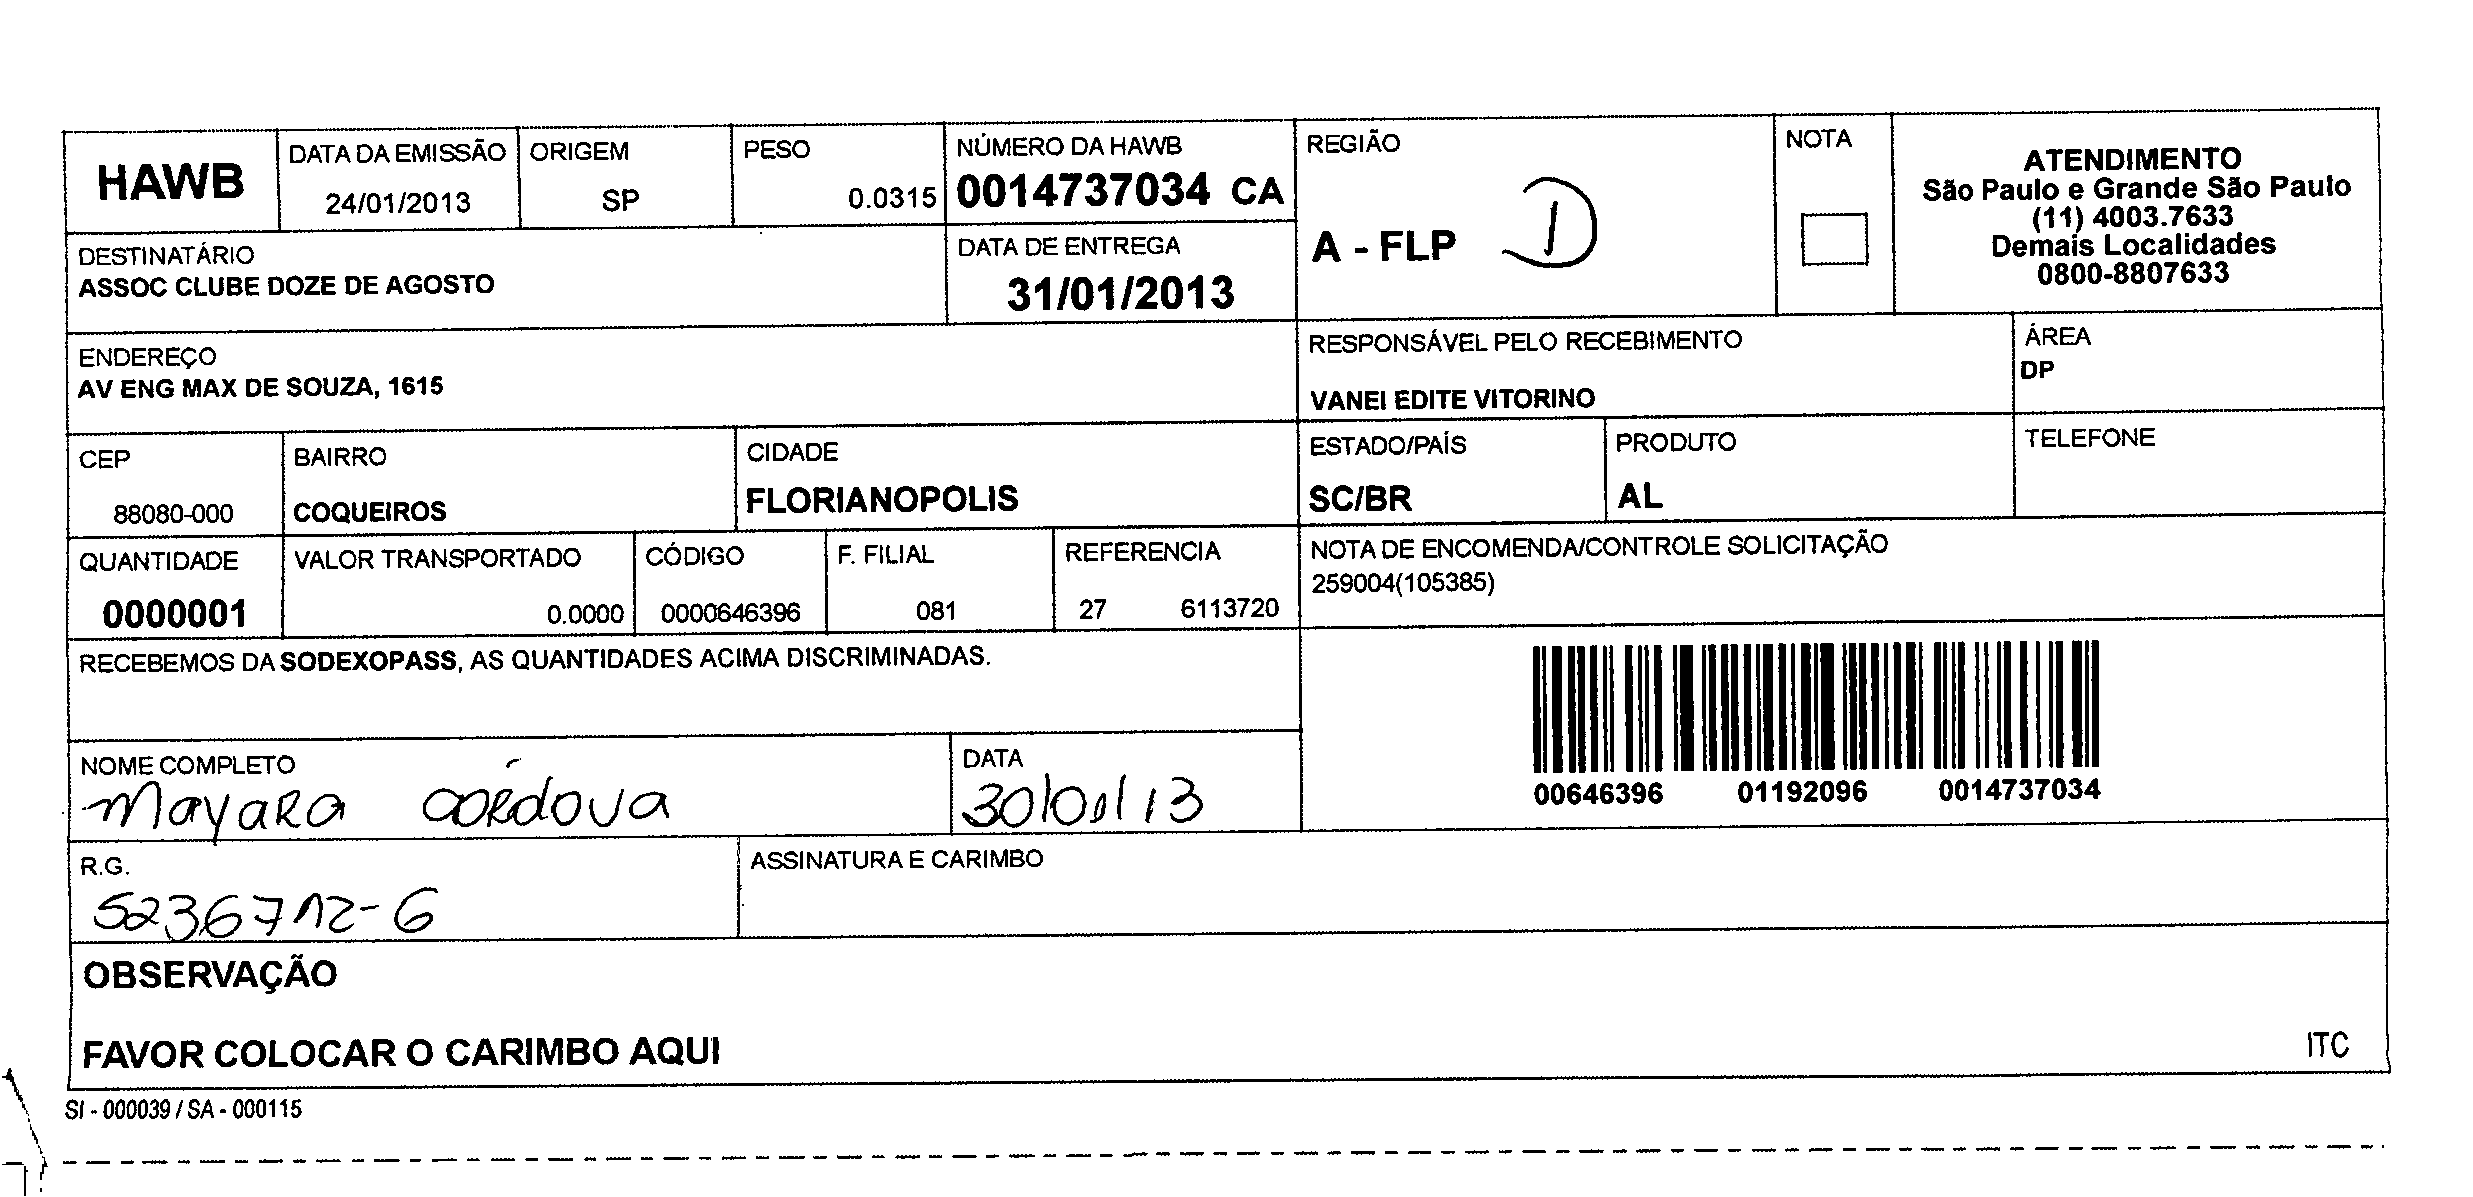 HAWB
DATA DA EMISSÃO
24/01/2013
ORIGEM
SP
PESO
0.0315
NÚMERO DA HAWB
0014737034 CA
REGIÃO
A - FLP D
NOTA
ATENDIMENTO
São Paulo e Grande São Paulo
(11) 4003.7633
Demais Localidades
0800-8807633
DESTINATÁRIO
ASSOC CLUBE DOZE DE AGOSTO
DATA DE ENTREGA
31/01/2013
ENDEREÇO
AV ENG MAX DE SOUZA, 1615
RESPONSÁVEL PELO RECEBIMENTO
VANEI EDITE VITORINO
ÁREA
DP
CEP
88080-000
BAIRRO
COQUEIROS
CIDADE
FLORIANOPOLIS
ESTADO/PAÍS
SC/BR
PRODUTO
AL
TELEFONE
QUANTIDADE
0000001
VALOR TRANSPORTADO
0.0000
CÓDIGO
0000646396
F. FILIAL
081
REFERENCIA
27 6113720
NOTA DE ENCOMENDA/CONTROLE SOLICITAÇÃO
259004(105385)
RECEBEMOS DA SODEXOPASS, AS QUANTIDADES ACIMA DISCRIMINADAS.
00646396 01192096 0014737034
NOME COMPLETO
Mayara Córdova
DATA
30/01/13
R.G.
5236712-6
ASSINATURA E CARIMBO
OBSERVAÇÃO
FAVOR COLOCAR O CARIMBO AQUI
ITC
SI - 000039 / SA - 000115